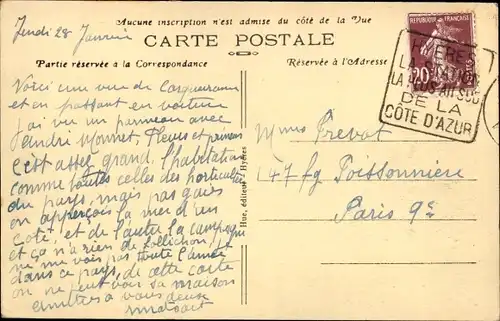 Aucune inscription n'est admise du côté de la Vue
CARTE POSTALE
Partie réservée à la Correspondance
Réservée à l'Adresse
Jeudi 28 Janvier
Voici une vue de Carqueiranne
et en passant en voiture
j'ai vu un panneau avec
André Monnet, Fleurs et primeurs
c'est assez grand, l'habitation
comme toutes celles des horticulteurs
du pays, mais pas gais
on aperçois la mer d'un
coté, et de l'autre la campagne
et ça n'a rien de folichon, je
ne me vois pas toute l'année
dans ce pays, de cette carte
on ne peut voir sa maison
amitiés a vous deux
Hue, éditeur, Hyères
REPUBLIQUE FRANÇAISE
20
HYÈRES
LA STATION
LA PLUS AU SUD
DE LA
CÔTE D'AZUR
Mmes Prevot
147 fg Poissonnière
Paris 9e